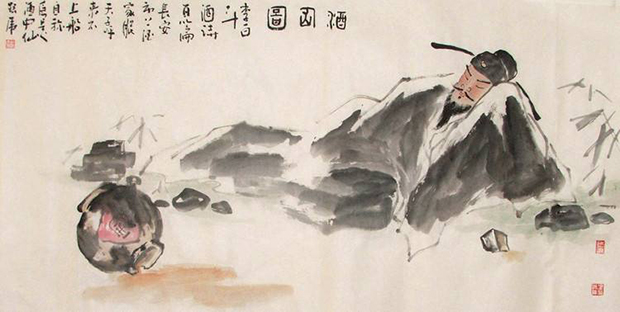 酒 圖
李白一
斗
酒詩
百篇
長安
市上酒
家眠
天子呼
來不
上船
自称
臣是
酒中仙